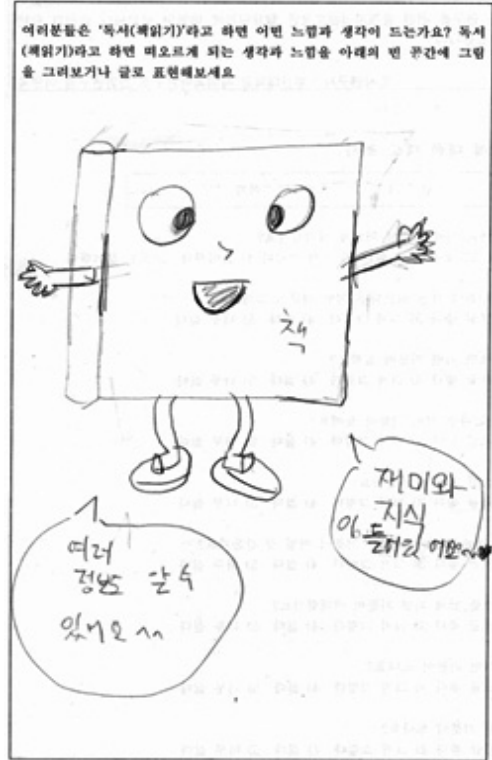 여러분들은 '독서(책읽기)'라고 하면 어떤 느낌과 생각이 드는가요? 독서
(책읽기)라고 하면 떠오르게 되는 생각과 느낌을 아래의 빈 공간에 그림
을 그려보거나 글로 표현해보세요
책
재미와
지식
이 들어있어요~
여러
정보도 알 수
있어요 ^^